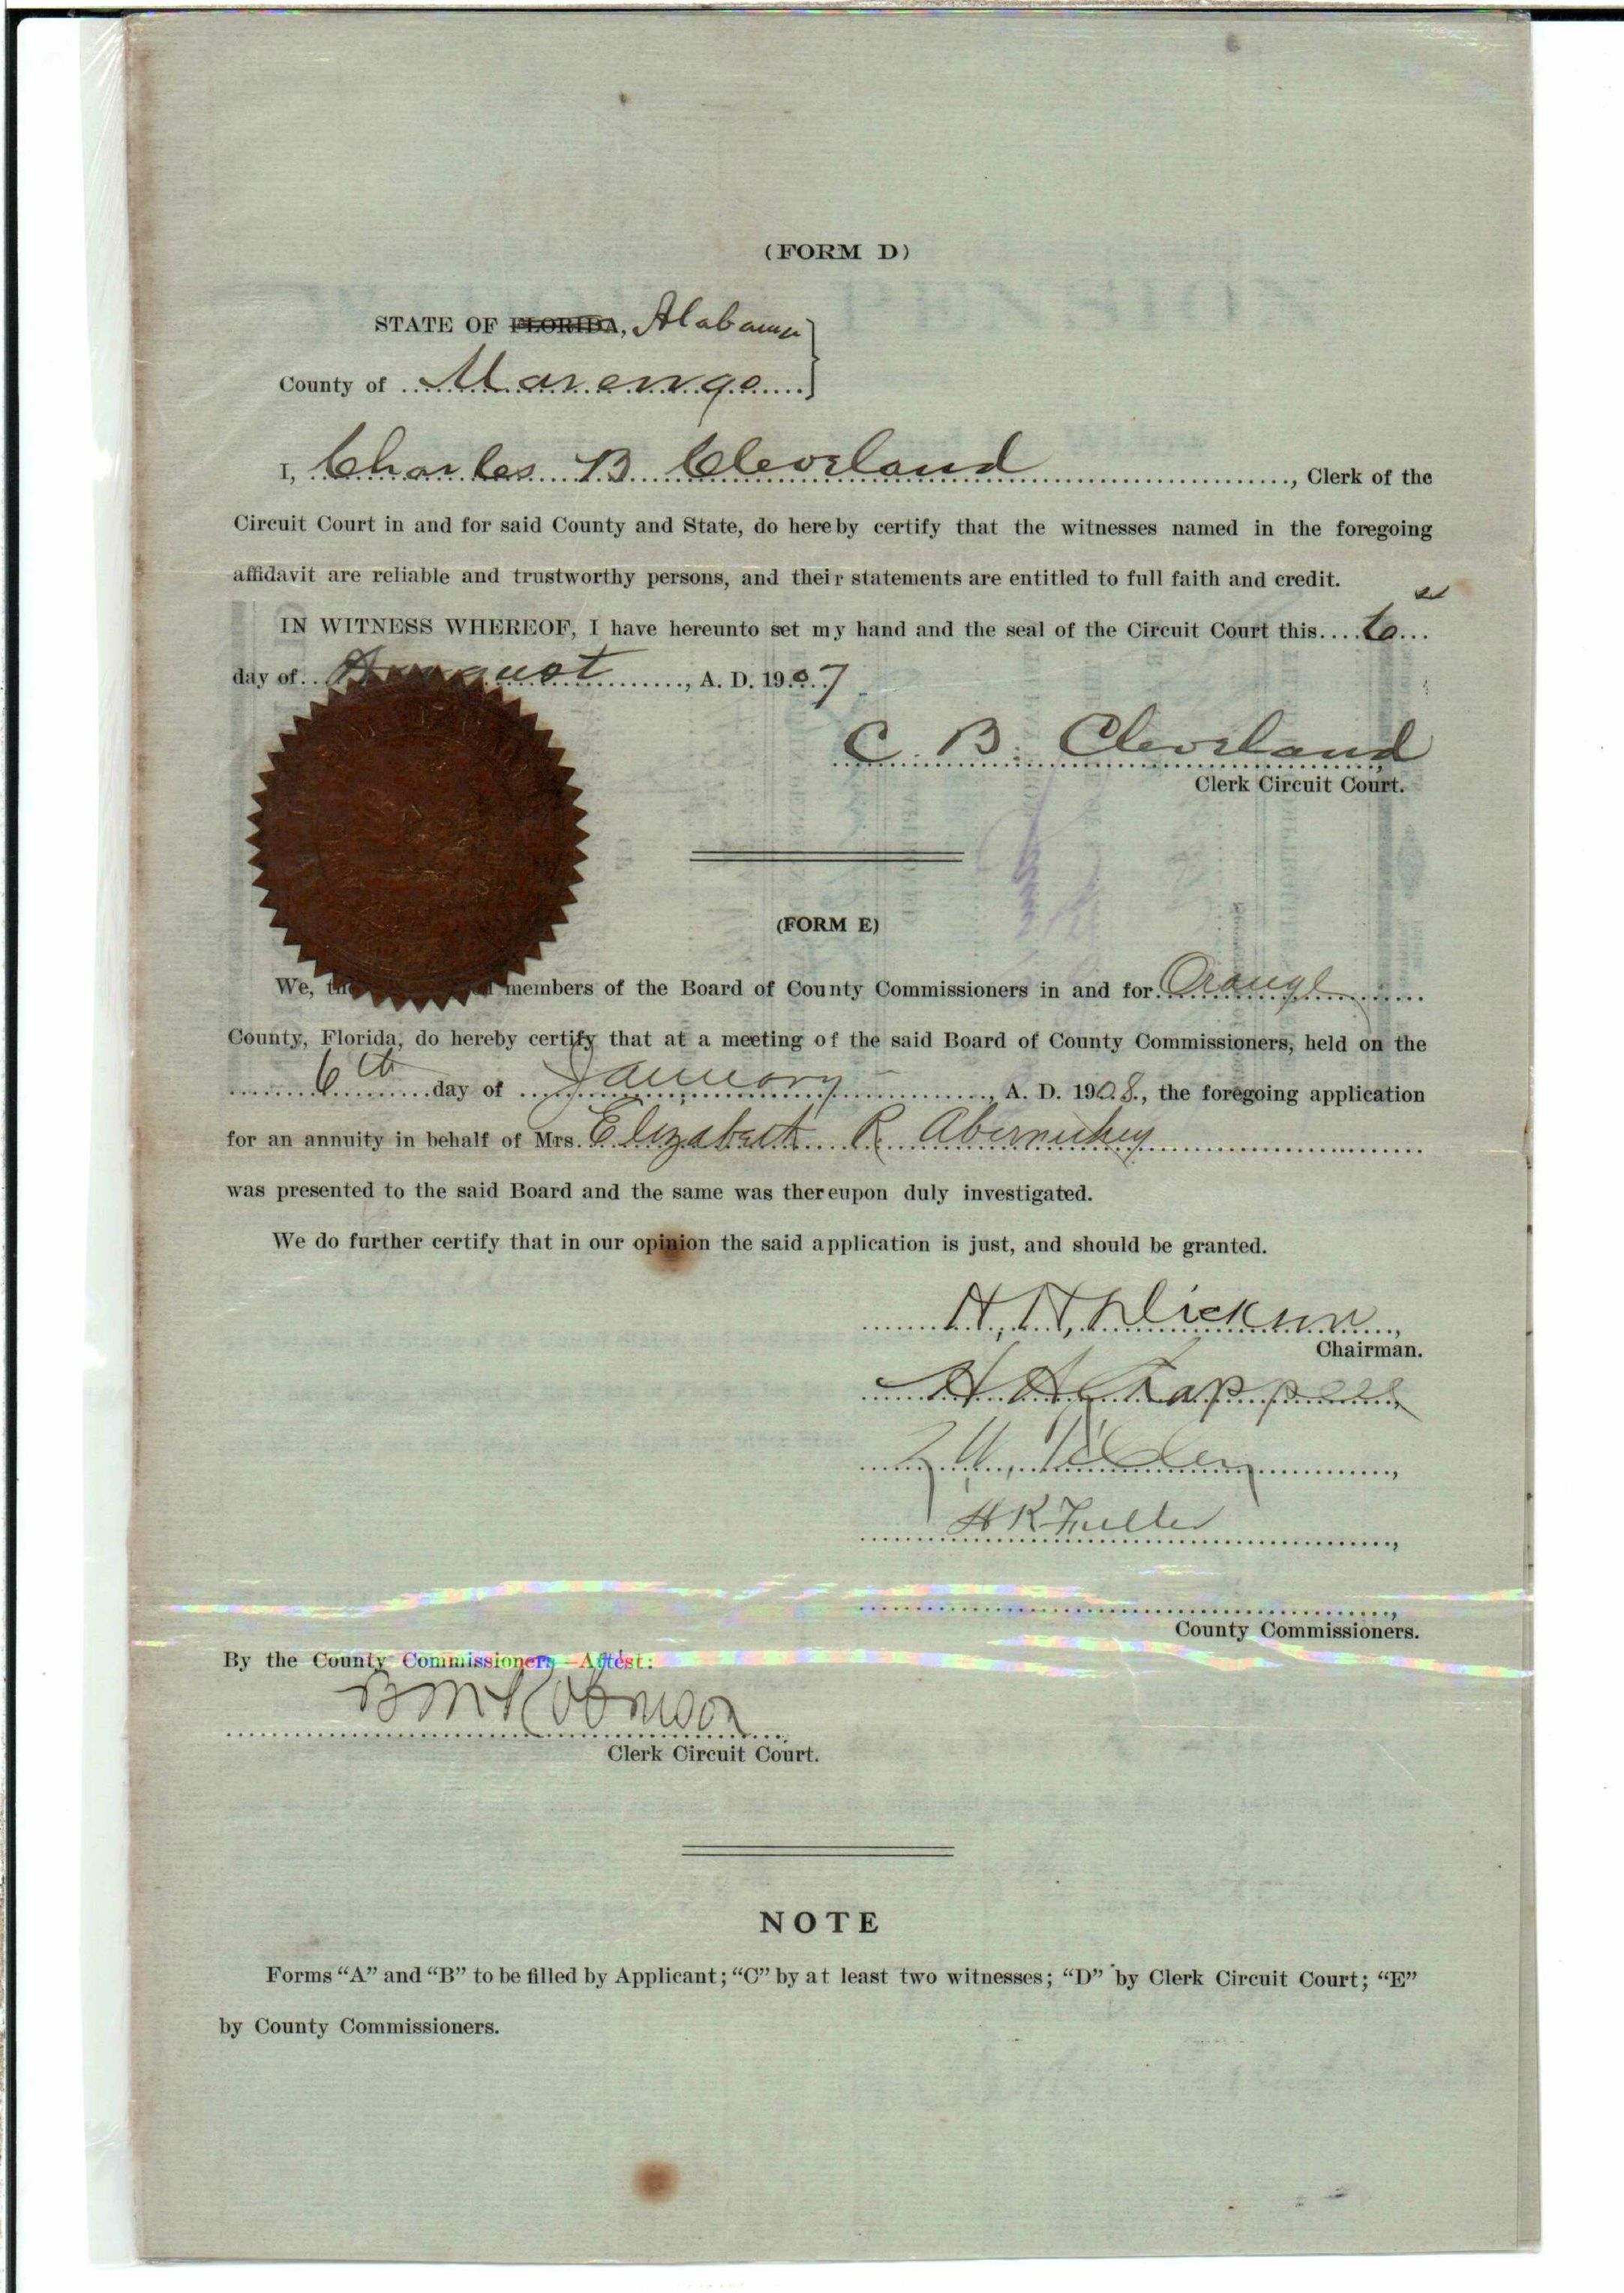 (FORM D)
STATE OF FLORIDA, Alabama
County of Marengo
I, Charles B Cleveland, Clerk of the
Circuit Court in and for said County and State, do hereby certify that the witnesses named in the foregoing
affidavit are reliable and trustworthy persons, and their statements are entitled to full faith and credit.
IN WITNESS WHEREOF, I have hereunto set my hand and the seal of the Circuit Court this
day of August, A. D. 1907
C. B. Cleveland
Clerk Circuit Court.
(FORM E)
We, members of the Board of County Commissioners in and for Orange
County, Florida, do hereby certify that at a meeting of the said Board of County Commissioners, held on the
6th day of January, A. D. 1908., the foregoing application
for an annuity in behalf of Mrs. Elizabeth R Abernethey
was presented to the said Board and the same was thereupon duly investigated.
We do further certify that in our opinion the said application is just, and should be granted.
H. H. Dickson,
Chairman.
H H Chappell
Tilden,
H K Fuller,
County Commissioners.
By the County Commissioners—Attest:
B M Robinson
Clerk Circuit Court.
NOTE
Forms "A" and "B" to be filled by Applicant; "C" by at least two witnesses; "D" by Clerk Circuit Court; "E"
by County Commissioners.